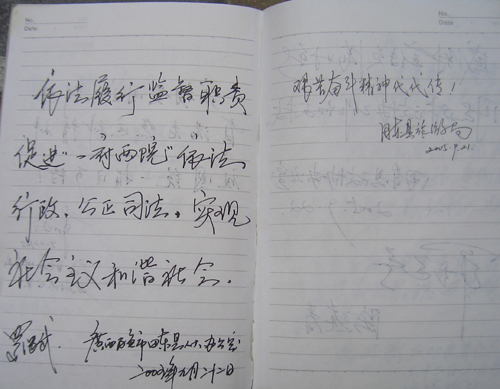 No.
Date
依法履行监督职责
促进"一府两院"依法
行政，公正司法，实现
社会主义和谐社会．
广西百色市田东县人大办公室
No.
Date
艰苦奋斗精神代代传！
田东县旅游局
2005.9.21.